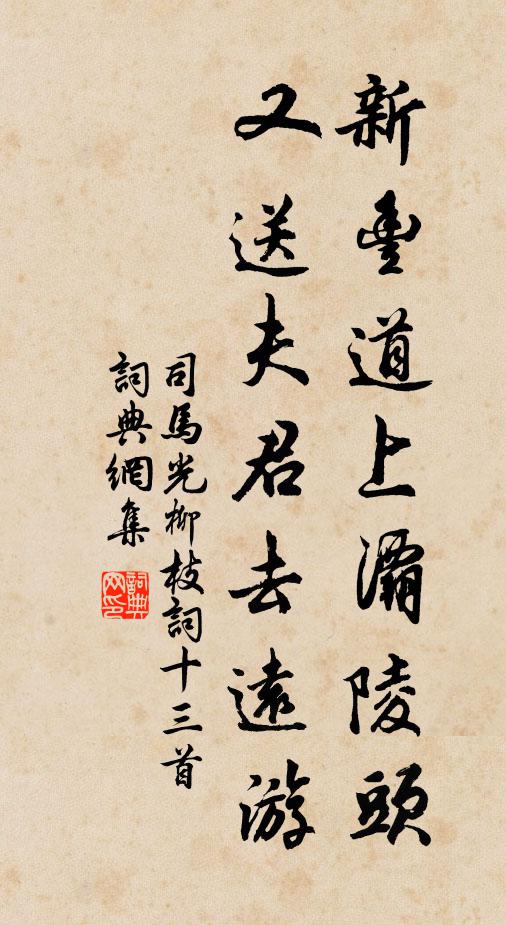 新豐道上灞陵頭
又送夫君去遠游
司馬光柳枝詞十三首
詞典網集
詞典網印